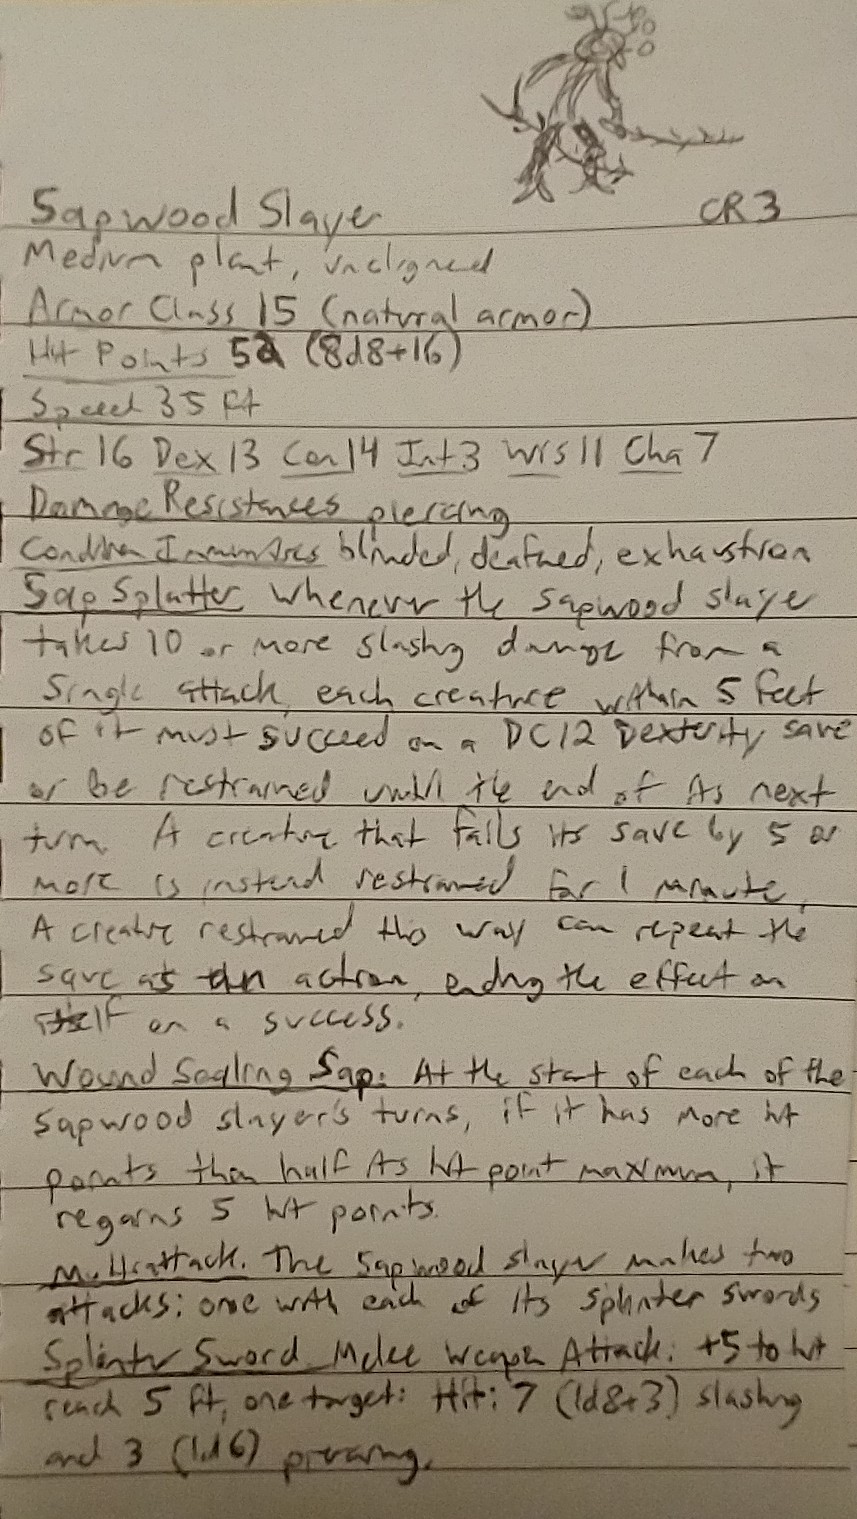 Sapwood Slayer CR 3
Medium plant, unaligned
Armor Class 15 (natural armor)
Hit Points 52 (8d8+16)
Speed 35 ft
Str 16 Dex 13 Con 14 Int 3 Wis 11 Cha 7
Damage Resistances piercing
Condition Immunities blinded, deafned, exhaustion
Sap Splatter Whenever the sapwood slayer
takes 10 or more slashing damage from a
single attack, each creature within 5 feet
of it must succeed on a DC 12 Dexterity save
or be restrained until the end of its next
turn. A creature that fails its save by 5 or
more is instead restrained for 1 minute.
A creature restrained this way can repeat the
save as an action, ending the effect on
itself on a success.
Wound Sealing Sap: At the start of each of the
sapwood slayer's turns, if it has more hit
points than half its hit point maximum, it
regains 5 hit points.
Multiattack. The sapwood slayer makes two
attacks: one with each of its splinter swords
Splinter Sword Melee Weapon Attack: +5 to hit
reach 5 ft, one target: Hit: 7 (1d8+3) slashing
and 3 (1d6) piercing.